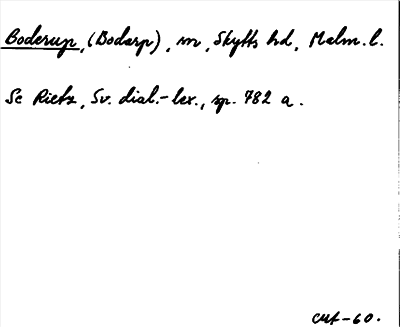 Boderup, (Bodarp), m, Skytts hd, Malm. l.
Se Rietz, Sv. dial.-lex., sp. 782 a.